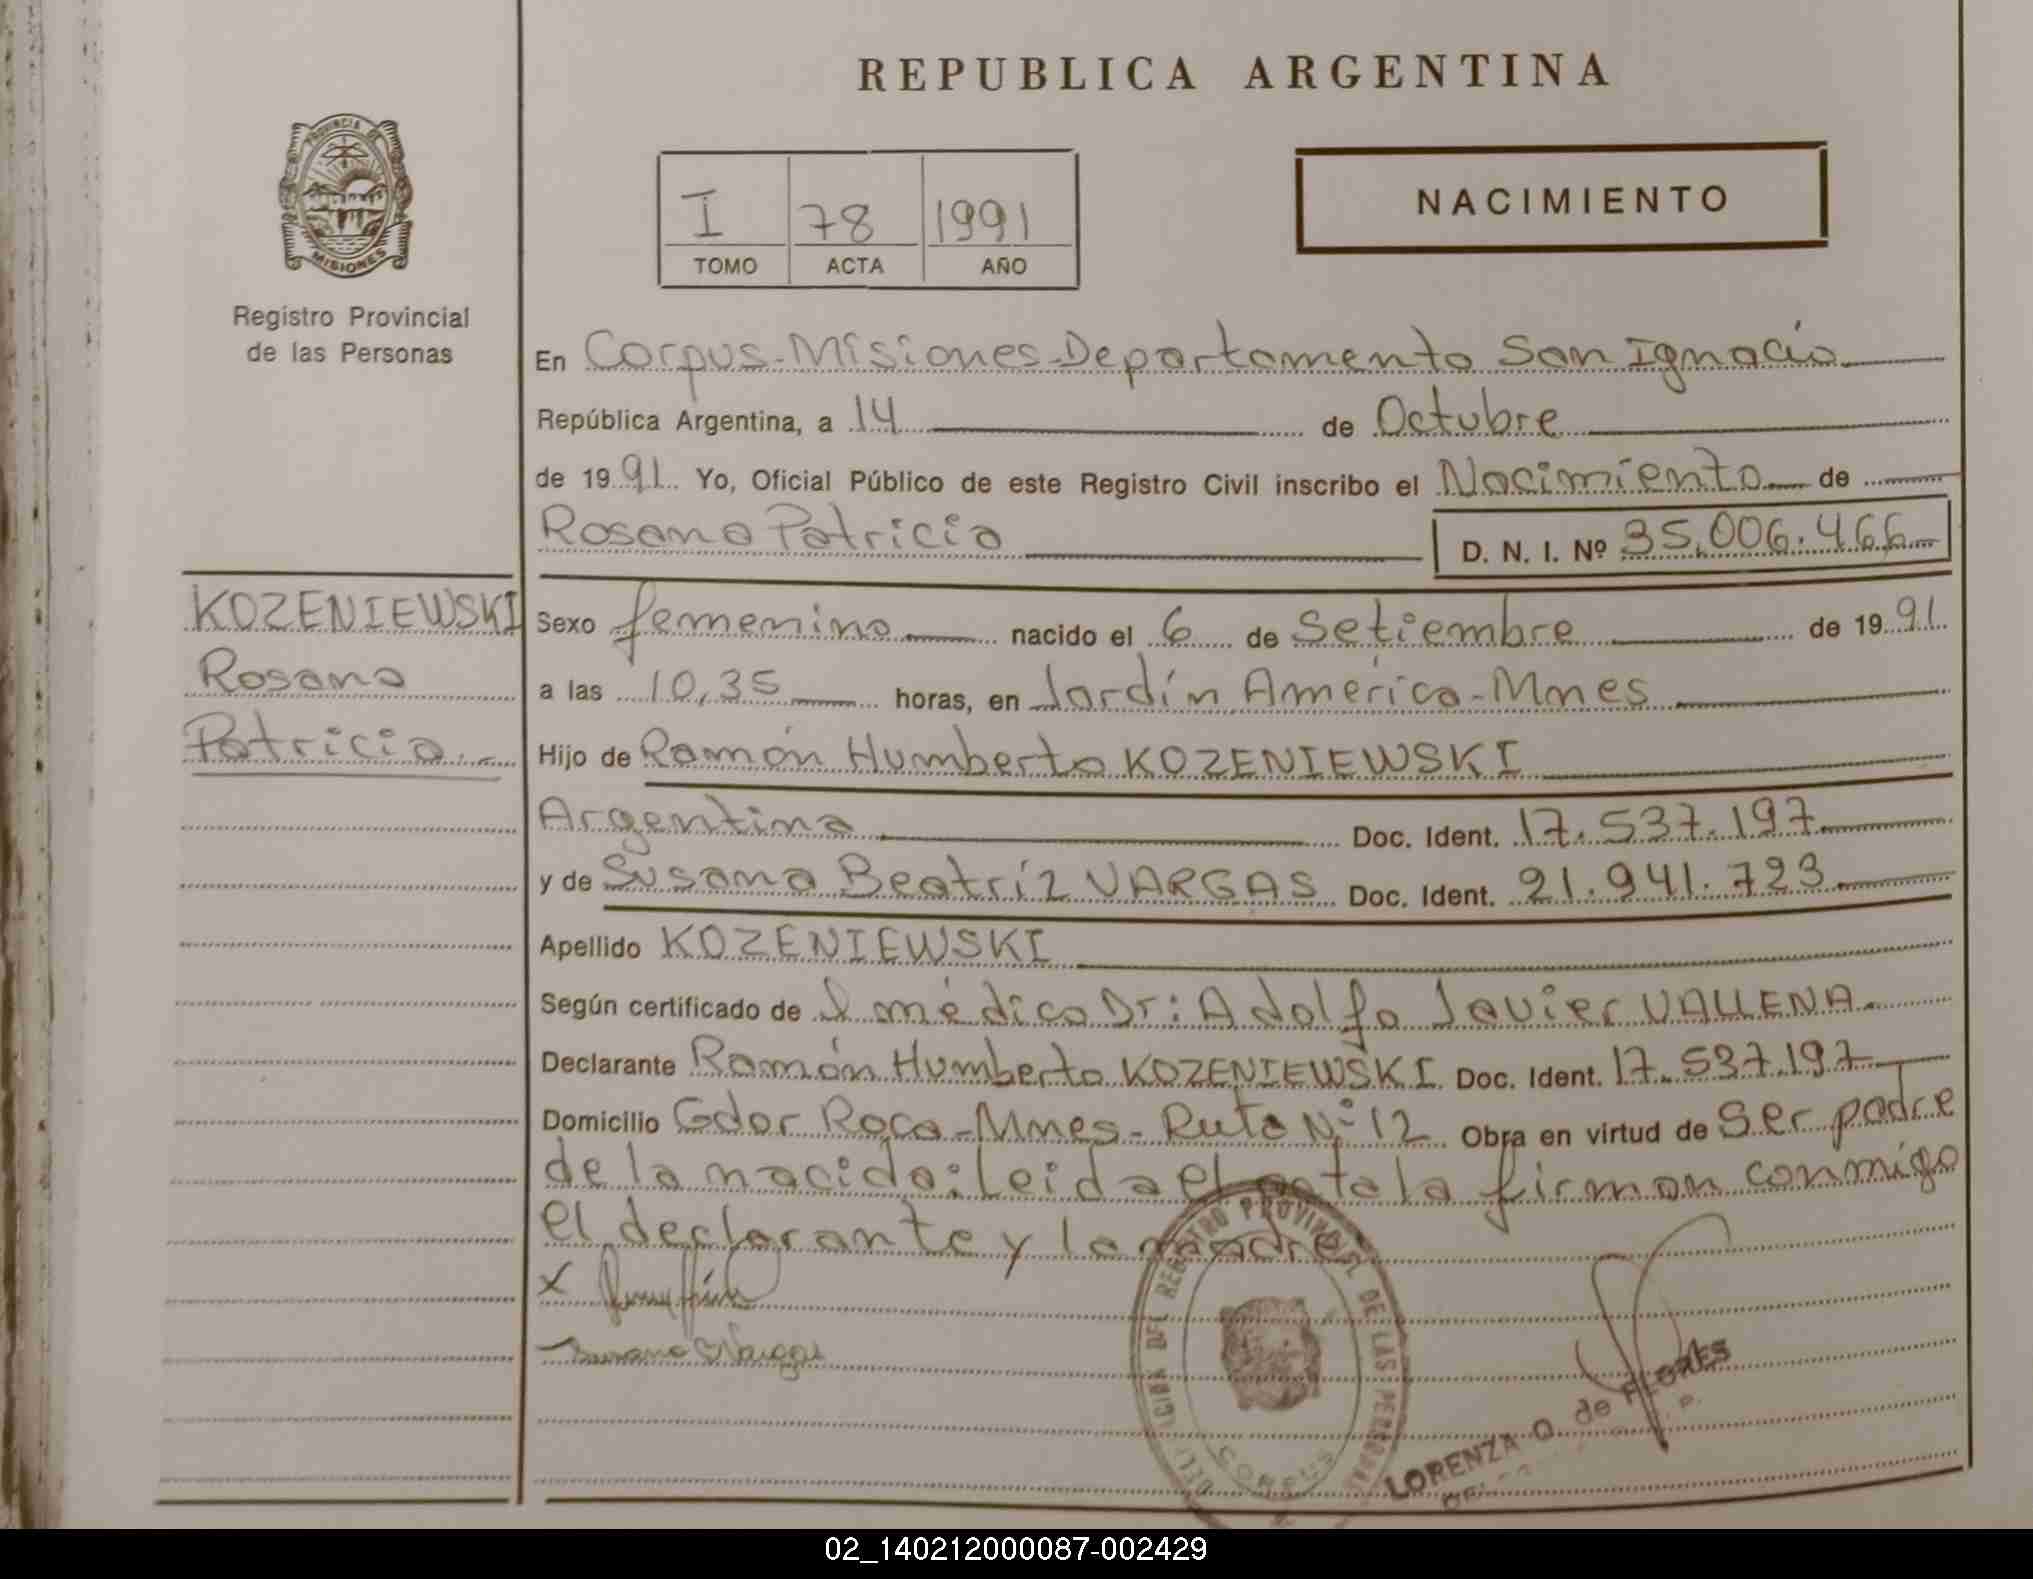 REPUBLICA ARGENTINA
PROVINCIA DE
MISIONES
Registro Provincial
de las Personas
I 78 1991
TOMO ACTA AÑO
NACIMIENTO
En Corpus-Misiones-Departamento San Ignacio
República Argentina, a 14 de Octubre
de 1991 Yo, Oficial Público de este Registro Civil inscribo el Nacimiento de
Rosana Patricia
D. N. I. Nº 35.006.466
KOZENIEWSKI
Rosana
Patricia.-
Sexo femenino nacido el 6 de Setiembre de 1991
a las 10,35 horas, en Jardín América-Mnes
Hijo de Ramón Humberto KOZENIEWSKI
Argentina Doc. Ident. 17.537.197
y de Susana Beatríz VARGAS Doc. Ident. 21.941.723
Apellido KOZENIEWSKI
Según certificado de l médico Dr: Adolfo Javier VALLENA.
Declarante Ramón Humberto KOZENIEWSKI Doc. Ident. 17.537.197
Domicilio Gdor Roca-Mnes-Ruta Nº 12 Obra en virtud de ser padre
de la nacida: leida el acta la firman conmigo
el declarante y la madre
X
Susana B Vargas
DEL REGISTRO PROVINCIAL DE LAS PERSONAS
CORPUS
LORENZA O. de FLORES
02_140212000087-002429